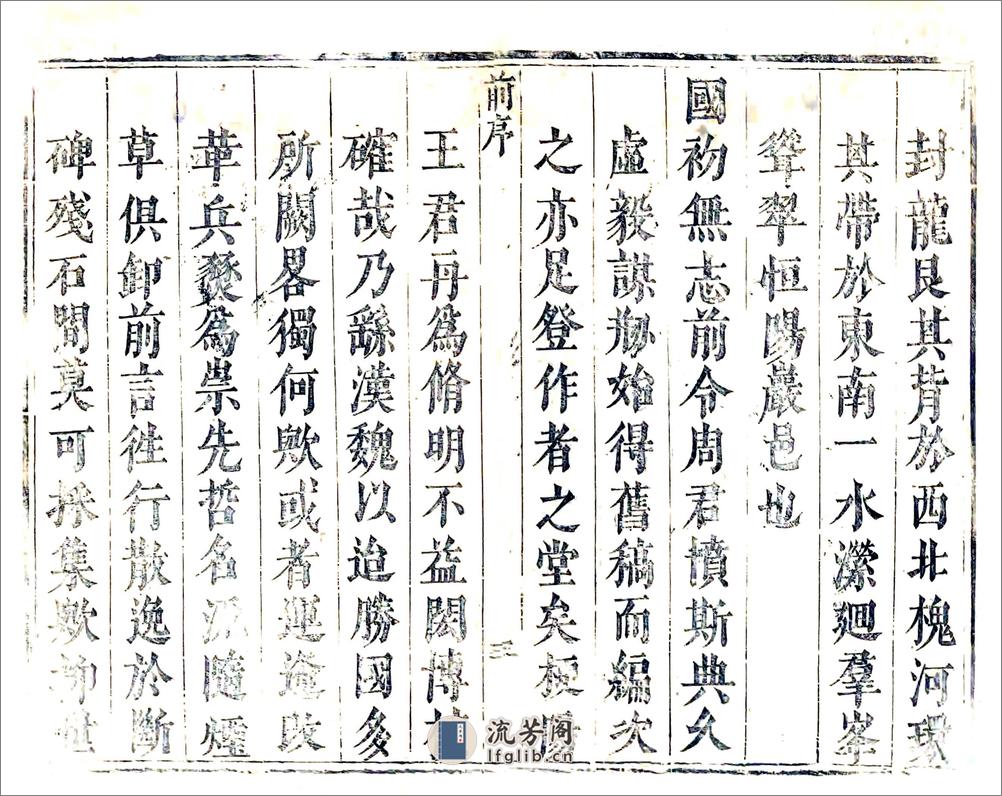 封龍艮其背於西北槐河環
其帶於東南一水瀠廻羣峯
聳翠恒陽巖邑也
國初無志前令周君憤斯典久
虛毅謀剏始得舊稿而編次
之亦足登作者之堂矣
前序
三
王君再爲脩明不益閎博
確哉乃繇漢魏以迨勝國多
所闕畧獨何歟或者運遊
華兵燹爲祟先哲名 隨煙
草俱卸前言徃行散逸於斷
碑殘石間莫可採集歟抑世
流芳阁
lfglib.cn